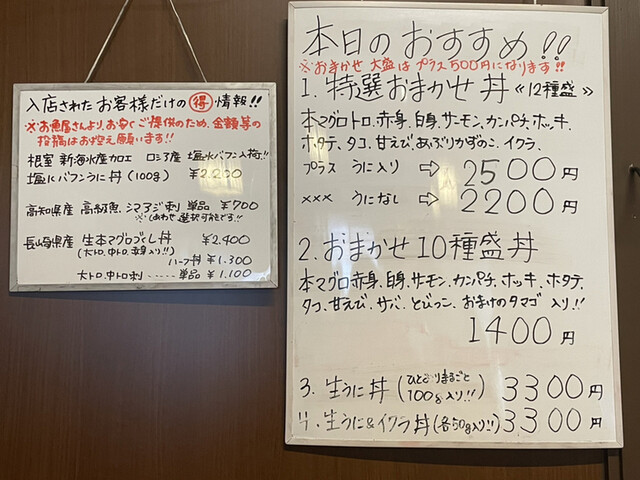 入店されたお客様だけの得情報!!
※お魚屋さんより、お安くご提供のため、金額等の
投稿はお控え願います!!
根室 新海水産加工 ロシア産 塩水バフン入荷!!
塩水バフンうに丼(100g) ¥2.200
高知県産 高級魚 シマアジ刺 単品 ¥700
選択可能です!!
長崎県産 生本マグロづくし丼 ¥2.400
(大トロ、中トロ、赤身入り!!)
ハーフ丼 ¥1.300
大トロ、中トロ刺……単品 ¥1.100
本日のおすすめ!!
※おまかせ大盛はプラス500円になります!!
1. 特選おまかせ丼《12種盛》
本マグロトロ、赤身、白身、サーモン、カンパチ、ホッキ、
ホタテ、タコ、甘えび、あぶりかずのこ、イクラ、
プラス うに入り ⇨ 2500円
××× うになし ⇨ 2200円
2. おまかせ10種盛丼
本マグロ赤身、白身、サーモン、カンパチ、ホッキ、ホタテ、
タコ、甘えび、サバ、とびっこ、おまけのタマゴ入り!!
1400円
3. 生うに丼(ひとおりまるごと100g入り!!) 3300円
4. 生うに&イクラ丼(各50g入り!!) 3300円